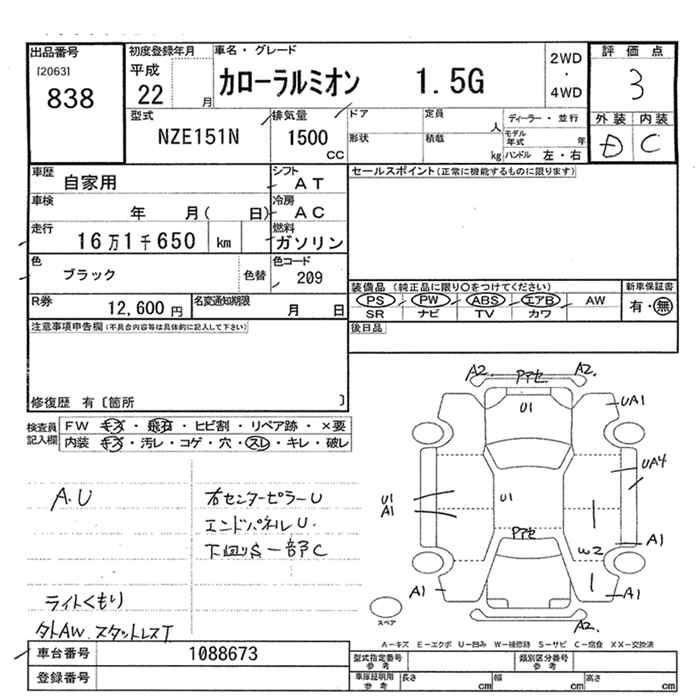 出品番号
[2063]
838
初度登録年月
平成
22 月
車名・グレード
カローラルミオン 1.5G
2WD
・
4WD
評価点
3
外装 内装
D C
型式
NZE151N
排気量
1500
CC
ドア
形状
定員
人
積載
kg
ディーラー・並行
モデル年式 年
ハンドル 左・右
車歴
自家用
シフト
AT
車検
年 月( 日)
冷房
AC
走行
16万1千650 km
燃料
ガソリン
色
ブラック
色替
色コード
209
R券
12,600円
名変通知期限
月 日
セールスポイント(正常に機能するものに限ります)
装備品 (純正品に限り○をつけてください)
新車保証書
PS PW ABS エアB AW
有・無
SR ナビ TV カワ
後日品
注意事項申告欄(不具合内容等は具体的に記入して下さい)
修復歴 有〔箇所 〕
検査員記入欄
FW キズ・飛石・ヒビ割・リペア跡・×要
内装 キズ・汚レ・コゲ・穴・スレ・キレ・破レ
A.U
右センターピラーU
エンドパネルU.
下回りS一部C
ライトくもり
外AW.スタットレスT
A2. アアセ A2.
U1
UA1
UA4
U1
A1
U1
アアセ
W2
A1
A1
A1
A2.
A2.
スペア
A-キズ E-エクボ U-凹み W-補修跡 S-サビ C-腐食 XX-交換済
車台番号
1088673
登録番号
型式指定番号
参考
類別区分番号
参考
車庫証明用
参考
長さ cm
幅 cm
高さ cm